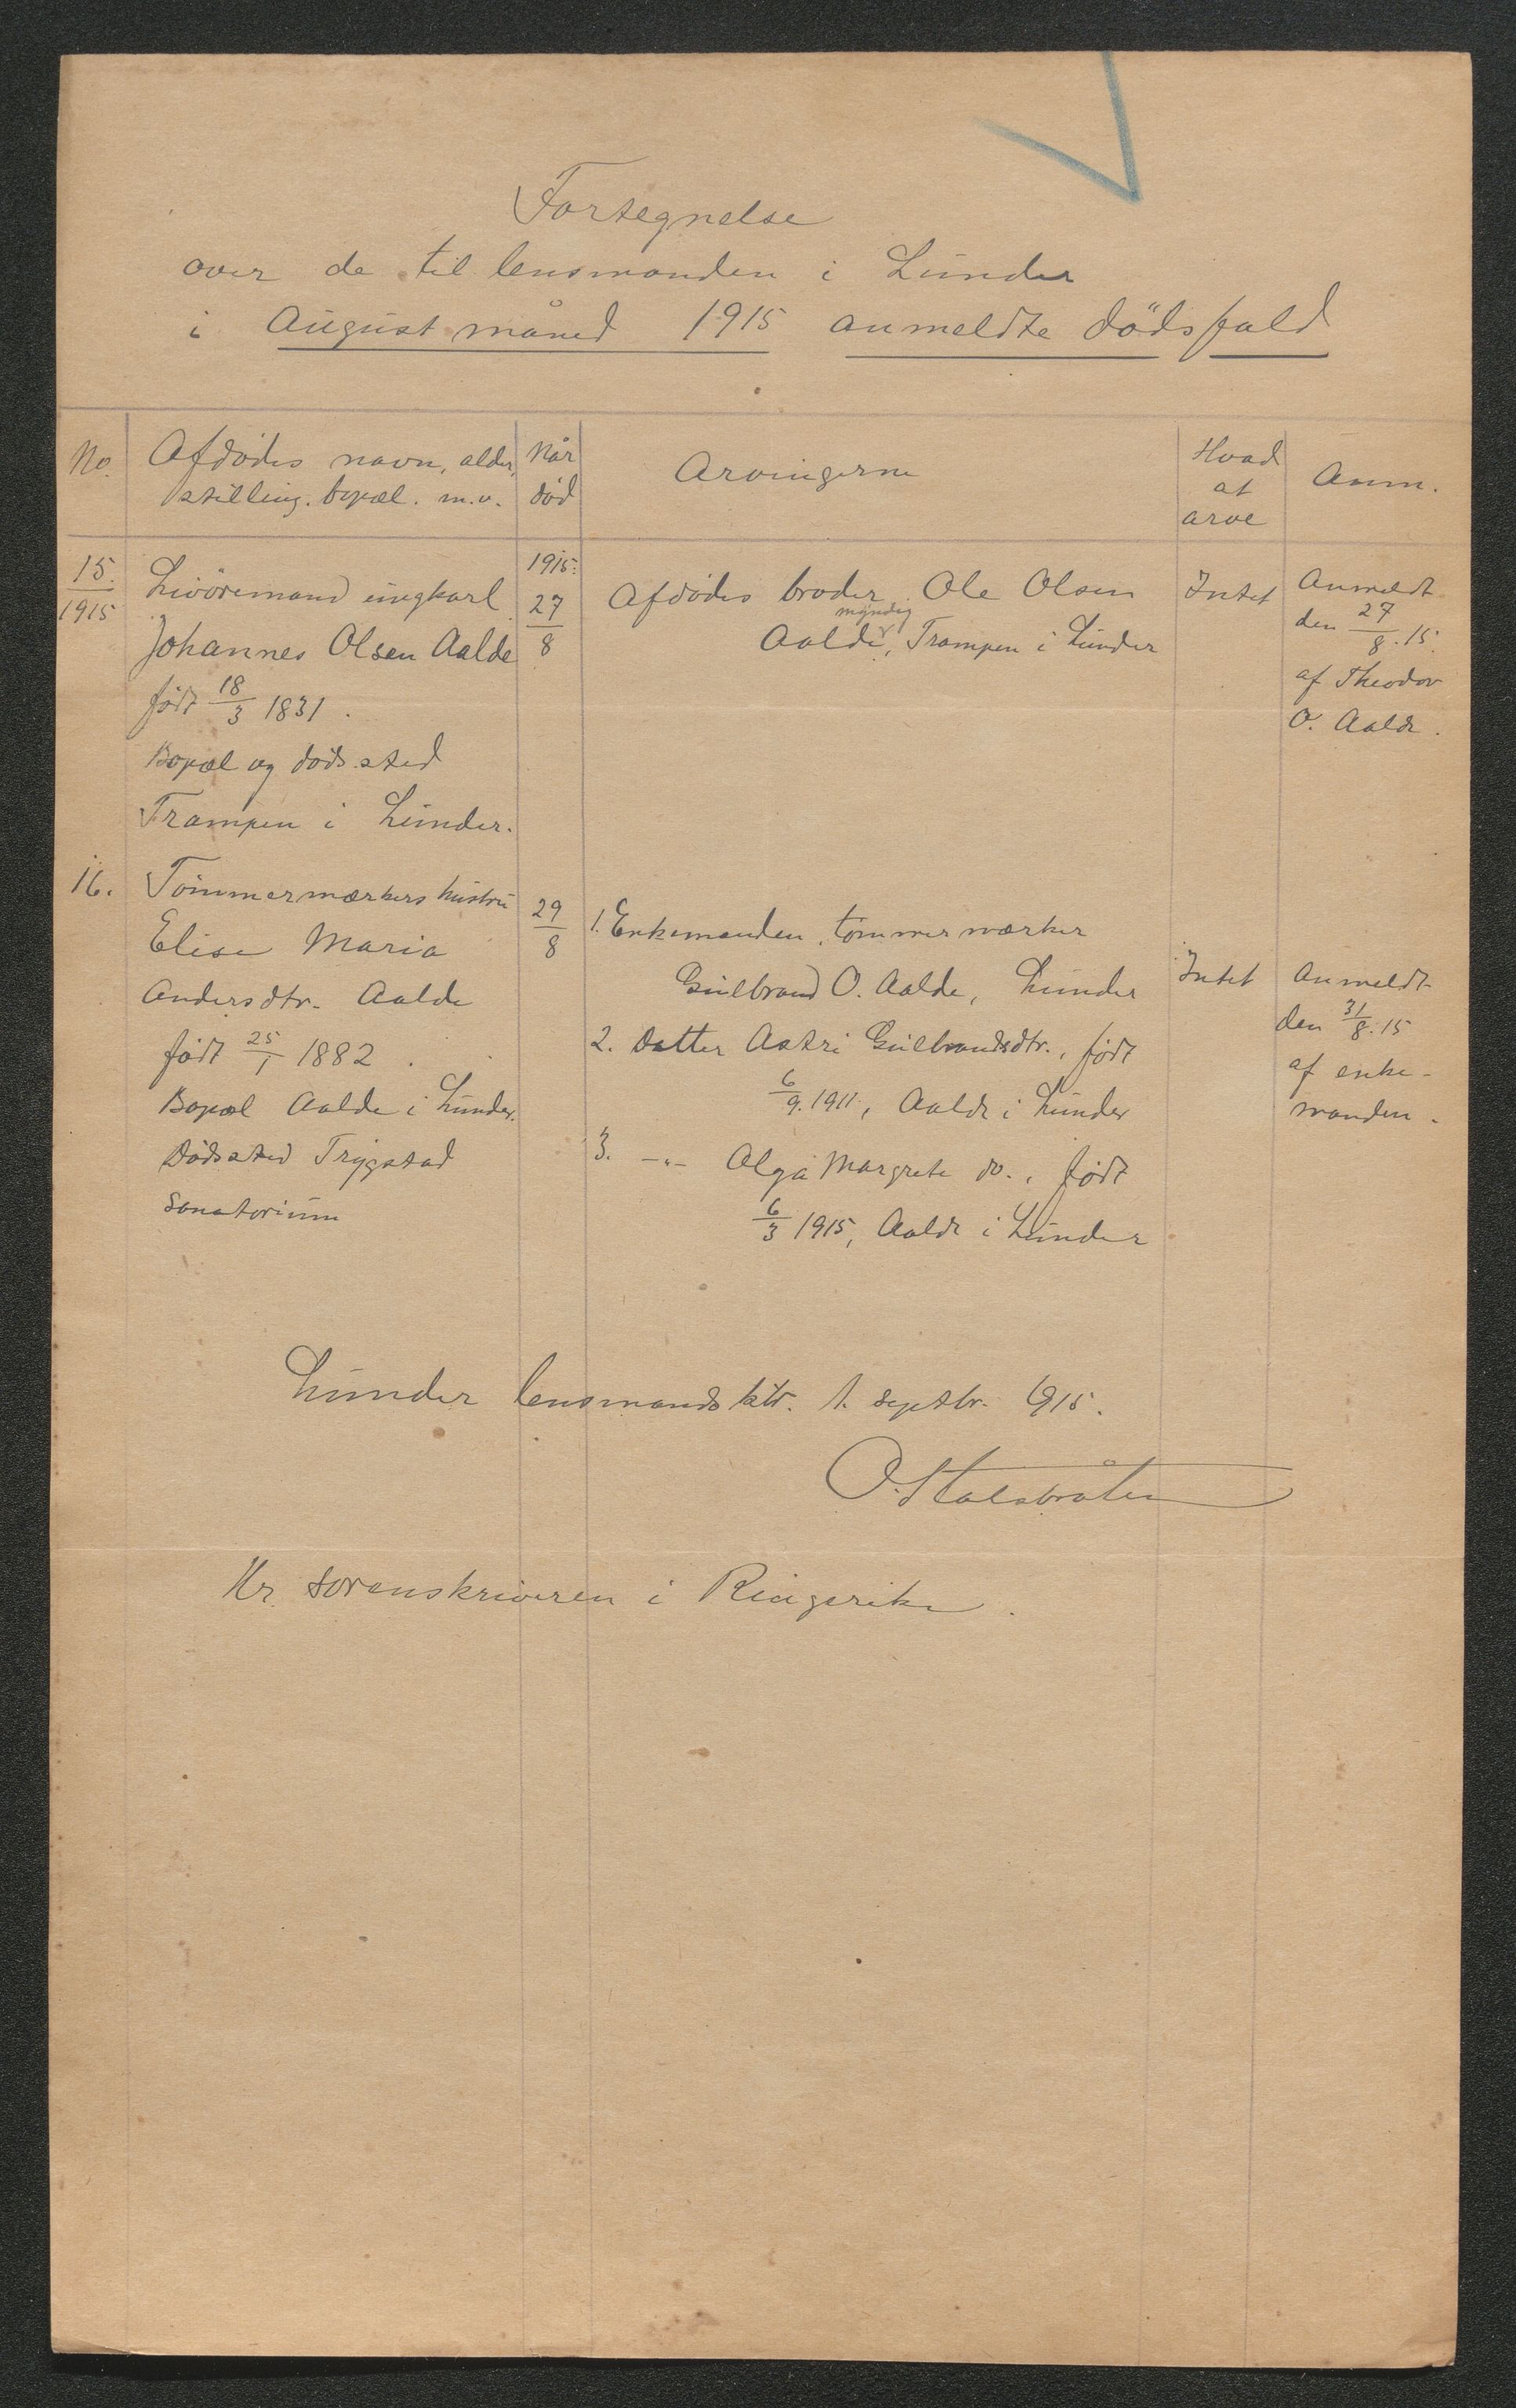 Fortegnelse
over de til lensmanden i Lunder
i August måned 1915 anmeldte dödsfald
No. Afdödes navn, alder, stilling. bopæl. m.v. Når död Arvingerne Hvad at arve Anm.
15.
1915
Livöremand ungkarl
Johannes Olsen Aalde
født 18/3 1831.
Bopæl og döds.sted
Trampen i Lunder.
1915:
27/8
Afdödes broder Ole Olsen
myndig
Aalde, Trampen i Lunder
Intet
Anmeldt
den 27/8.15.
af Theodor
O. Aalde.
16.
Tömmermærkers hustru
Elise Maria
Andersdtr. Aalde
født 25/1 1882.
Bopæl Aalde i Lunder.
Dödssted Trygstad
Sanatorium
29/8
1. Enkemanden, tömmermærker
Gulbrand O. Aalde, Lunder
2. Datter Astri Gulbrandsdtr., født
6/9.1911., Aalde i Lunder
3. -"- Olga Margrete do., født
6/3 1915, Aalde i Lunder
Intet
Anmeldt
den 31/8.15
af enke-
manden.
Lunder lensmandsktr. 1. septbr. 1915.
O. Stalsbråten
Hr. sorenskriveren i Ringerike.